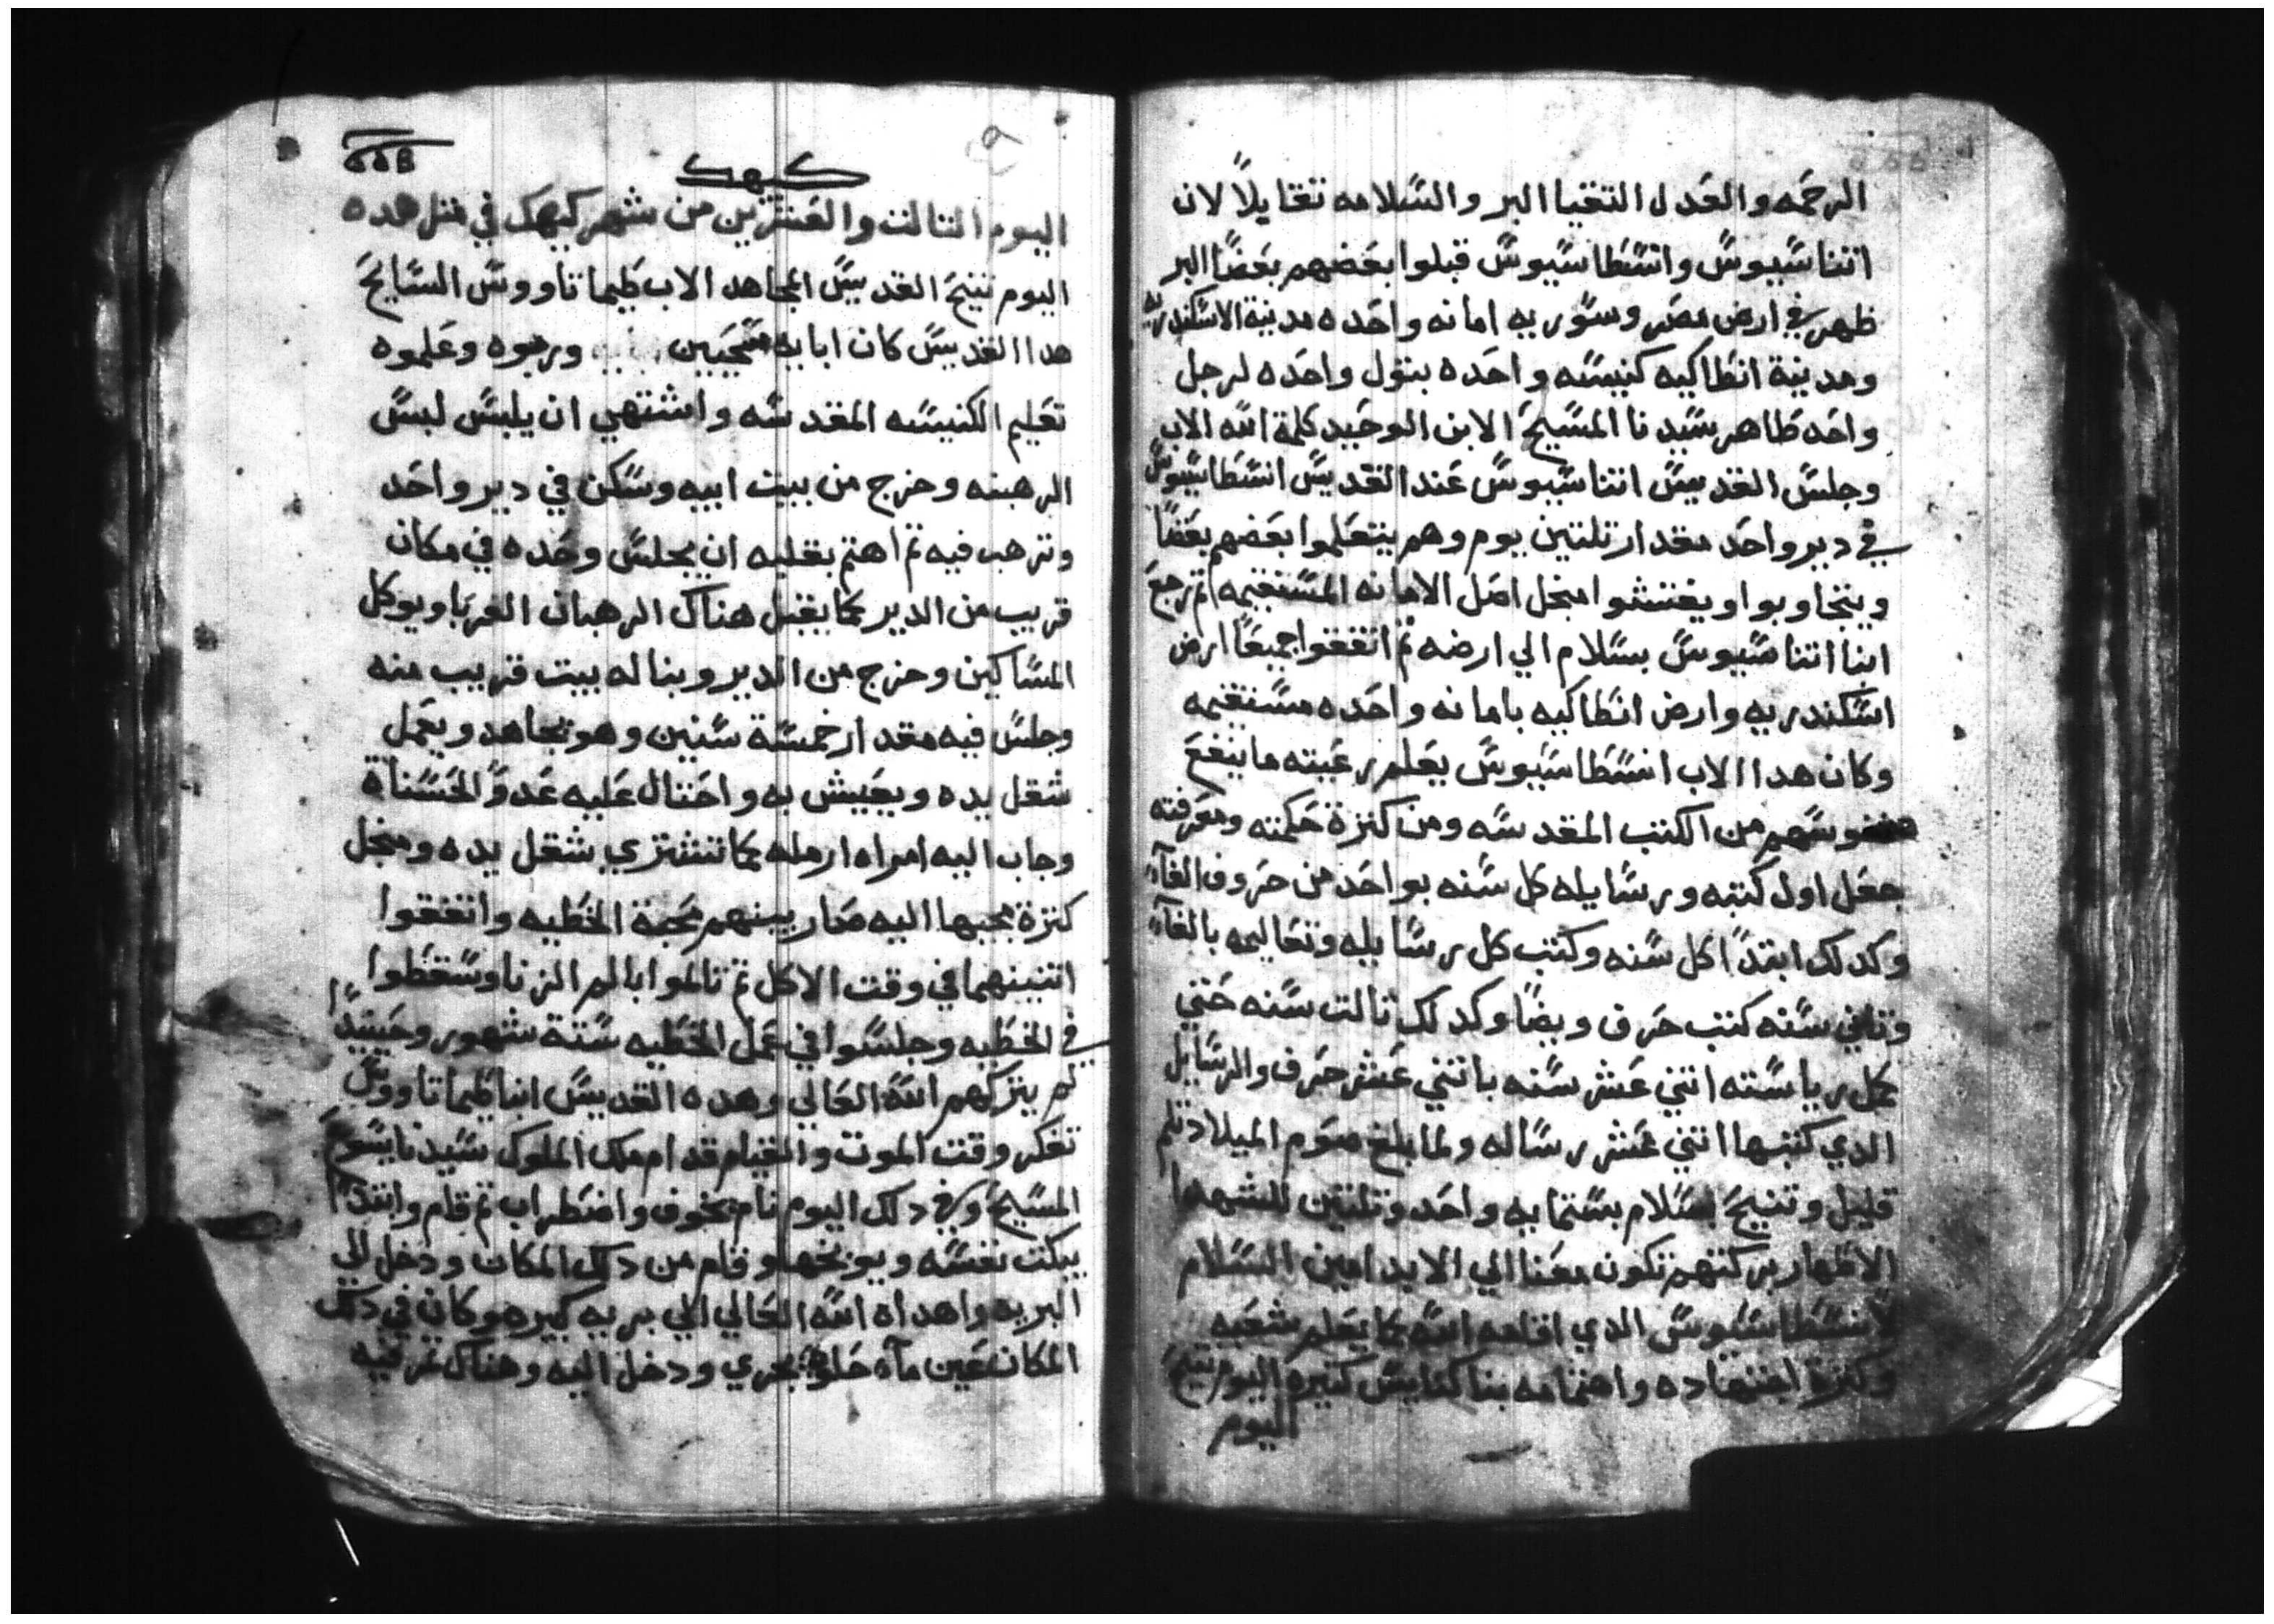 الرحمه والعدل التقيا البر والسلامه تقايلا لان
اتناسيوس وانسطاسيوس قبلوا بعضهم بعضا البر
ظهر في ارض مصر وسوريه امانه واحده مدينة الاسكندريه
ومدينة انطاكيه كنيسه واحده بتول واحده لرجل
واحد طاهر سيدنا المسيح الابن الوحيد كلمة الله الاب
وجلس القديس اتناسيوس عند القديس انسطاسيوس
في دير واحد مقدار تلتين يوم وهم يتعلموا بعضهم بعضا
ويتجاوبوا ويفتشوا منجل اصل الامانه المستقيمه تم رجع
ابنا اتناسيوس بسلام الي ارضه تم اتفقوا جميعا ارض
اسكندريه وارض انطاكيه بامانه واحده مستقيمه
وكان هدا الاب انسطاسيوس يعلم رعيته ما ينفع
نفوسهم من الكتب المقدسه ومن كترة حكمته ومعرفته
جعل اول كتبه ورسايله كل سنه بواحد من حروف الفاء
وكدلك ابتدا كل سنه وكتب كل رسايله وتعاليمه بالفاء
وتاني سنه كتب حرف ويضا وكدلك تالت سنه حتي
كمل رياسته اتني عشر سنه باتني عشر حرف والرسايل
الدي كتبها اتني عشر رساله ولما بلغ صوم الميلاد تلم
قليل وتنيح بسلام بستمايه واحد وتلتين للشهدا
الاطهار بركتهم تكون معنا الي الابد امين السلام
لانسطاسيوس الدي اقامه الله كما يعلم شعبه
وكترة اجتهاده واهتمامه بنا كنايس كتيره اليوم تنيح
اليوم
كيهك
اليوم التالت والعشرين من شهر كيهك في متل هده
اليوم تنيح القديس المجاهد الاب طيماتاووس السايح
هدا القديس كان ابايه مسيحيين وربوه وعلموه
تعليم الكنيسه المقدسه واشتهي ان يلبس لبس
الرهبنه وخرج من بيت ابيه وسكن في دير واحد
وترهب فيه تم اهتم بقلبه ان يجلس وحده في مكان
قريب من الدير كما يقبل هناك الرهبان الغربا ويوكل
المساكين وخرج من الدير وبنا له بيت قريب منه
وجلس فيه مقدار خمسة سنين وهو يجاهد ويعمل
شغل يده ويعيش به واحتال عليه عدو الحسناة
وجاب اليه امراه ارمله كما تشتري شغل يده ومنجل
كترة مجيها اليه صار بينهم محبة الخطيه واتفقوا
اتنينهما في وقت الاكل تم تالموا بالم الزنا وسقطوا
في الخطيه وجلسوا في عمل الخطيه ستة شهور وحينيدا
لم يتركهم الله العالي وهده القديس ابنا طيماتاووس
تفكر وقت الموت والقيام قدام ملك الملوك سيدنا يسوع
المسيح وفي دلك اليوم نام بخوف واضطراب تم قام وابتدا
يبكت نفسه ويوبخها وقام من دلك المكان ودخل الي
البريه واهداه الله العالي الي بريه كبيره وكان في دلك
المكان عين مآء حلوه يجري ودخل اليه وهناك